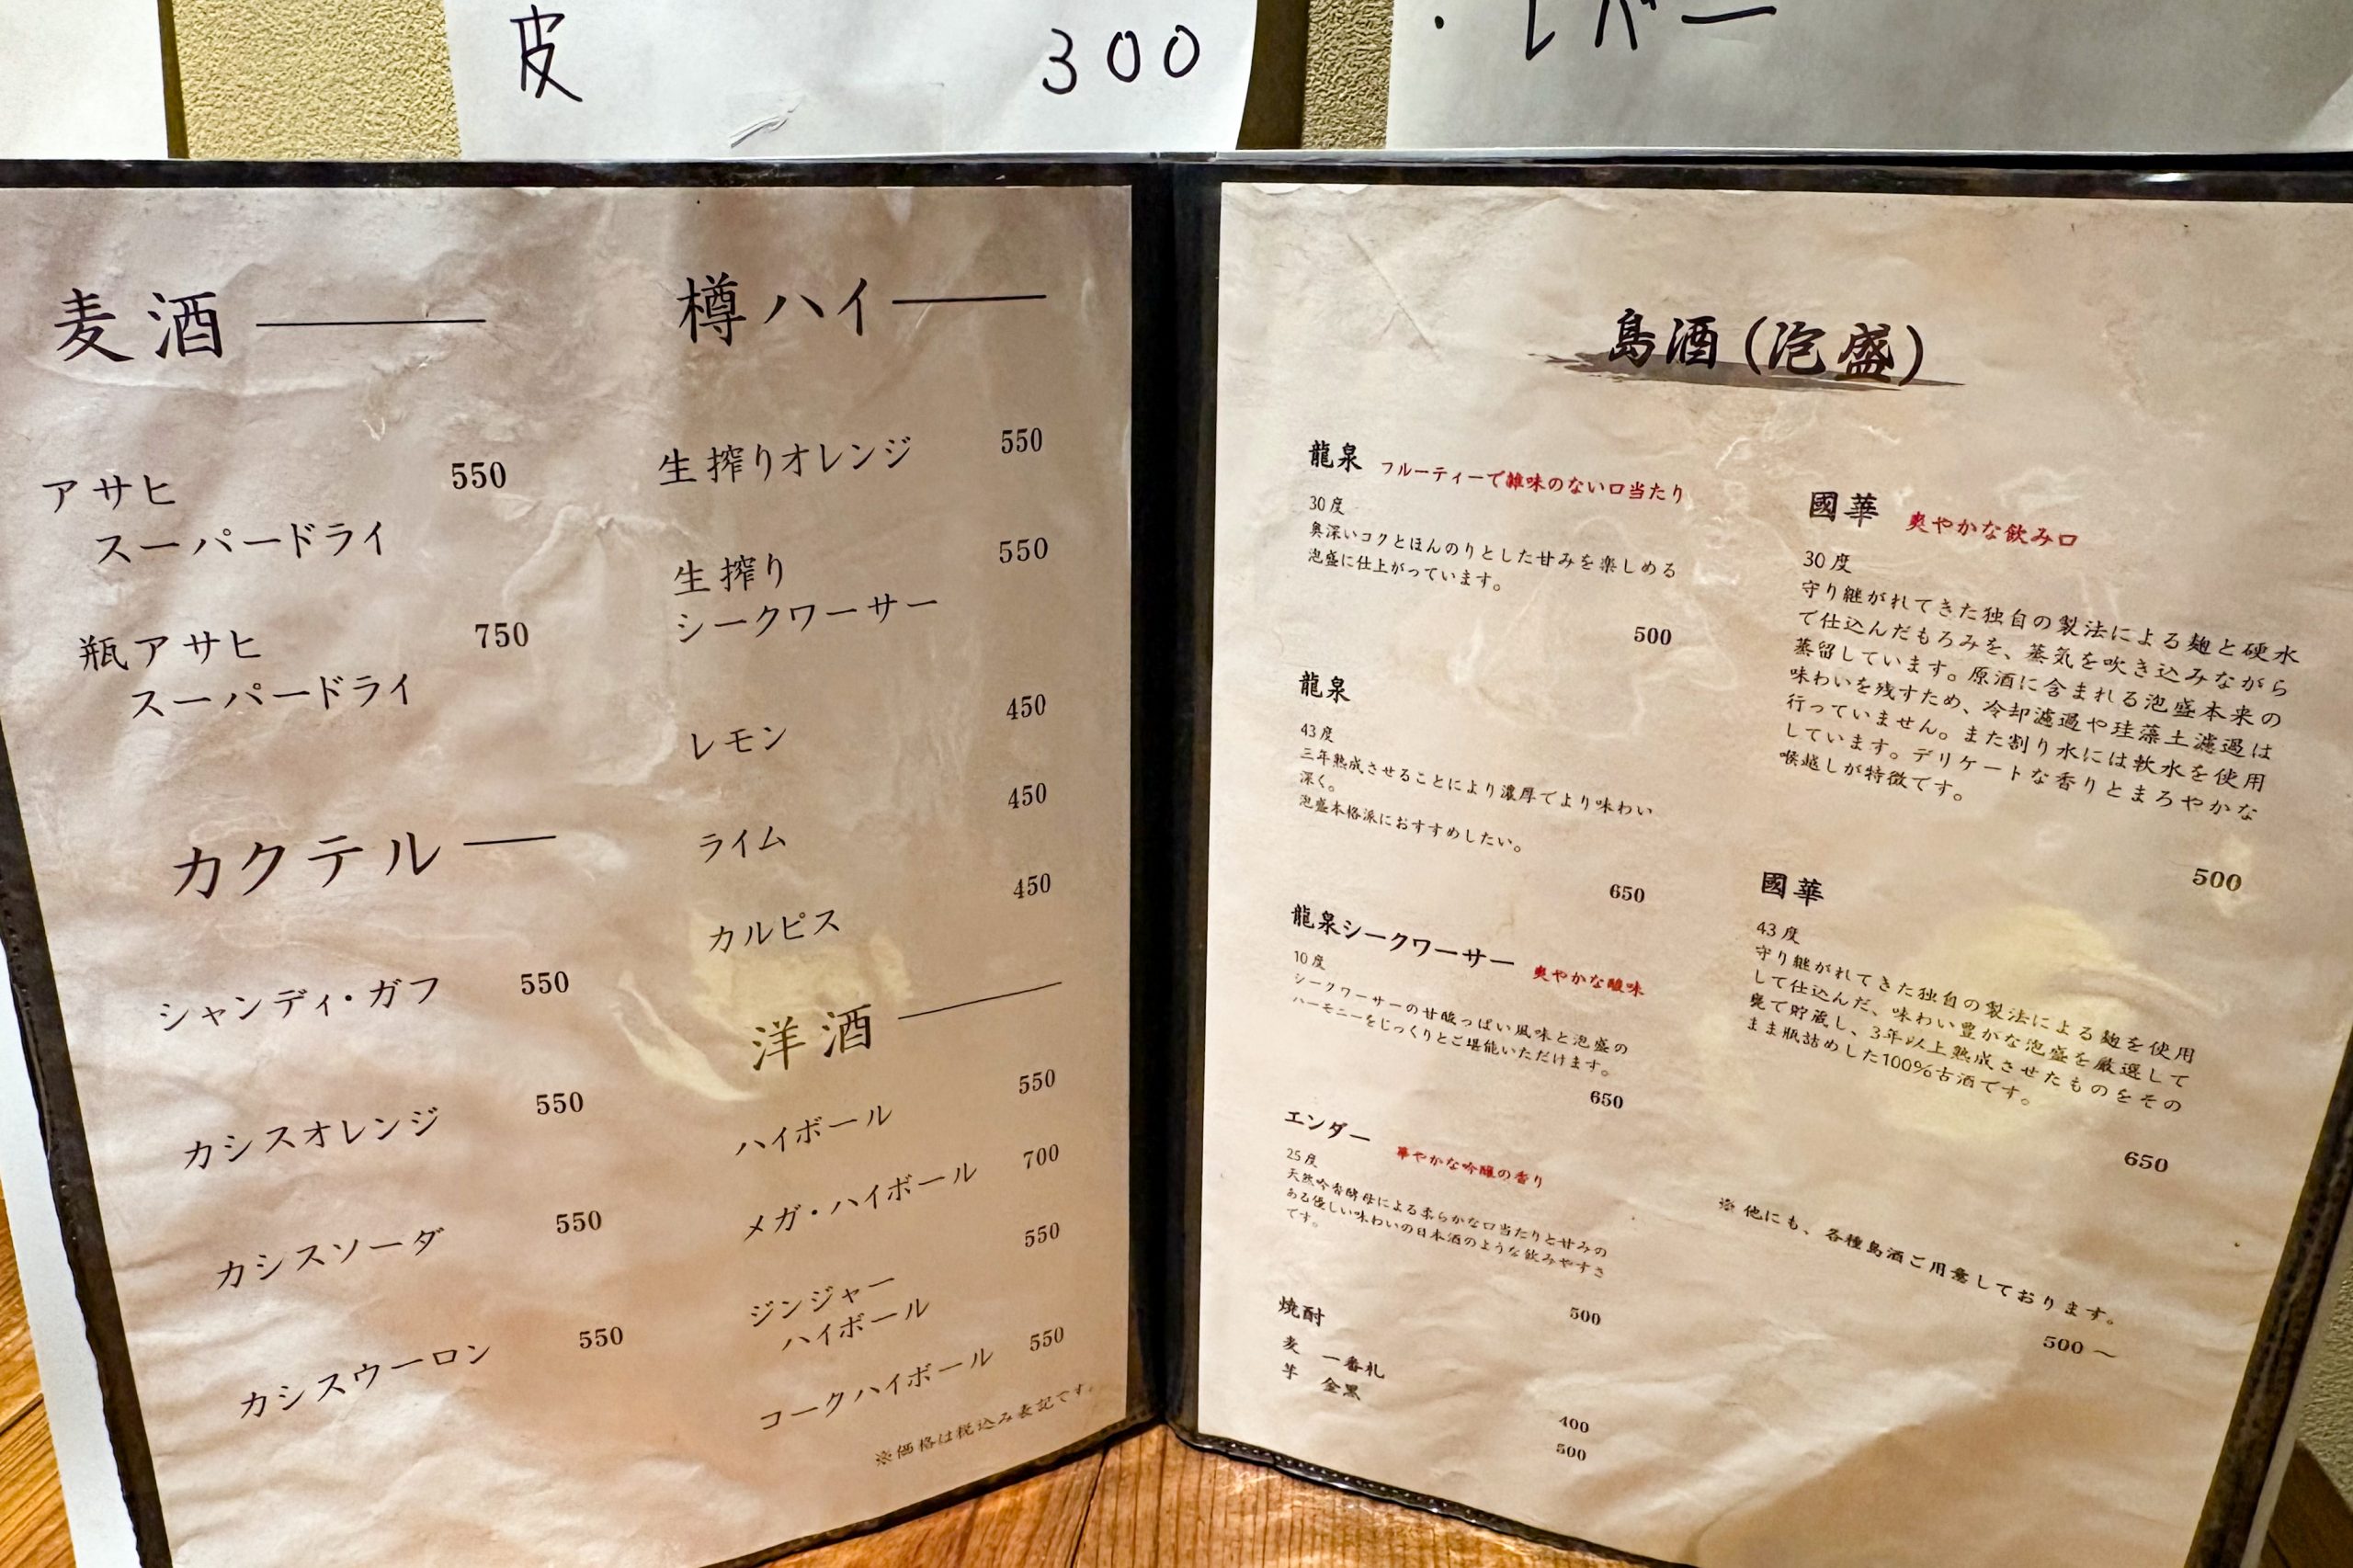 皮 300
・レバー
麦酒
アサヒ
スーパードライ 550
瓶アサヒ
スーパードライ 750
カクテル
シャンディ・ガフ 550
カシスオレンジ 550
カシスソーダ 550
カシスウーロン 550
樽ハイ
生搾りオレンジ 550
生搾り
シークワーサー 550
レモン 450
ライム 450
カルピス 450
洋酒
ハイボール 550
メガ・ハイボール 700
ジンジャー
ハイボール 550
コークハイボール 550
※価格は税込み表記です。
島酒(泡盛)
龍泉 フルーティーで雑味のない口当たり
30度
奥深いコクとほんのりとした甘みを楽しめる
泡盛に仕上がっています。
500
龍泉
43度
三年熟成させることにより濃厚でより味わい
深く。
泡盛本格派におすすめしたい。
650
龍泉シークワーサー 爽やかな酸味
10度
シークワーサーの甘酸っぱい風味と泡盛の
ハーモニーをじっくりとご堪能いただけます。
650
エンダー 華やかな吟醸の香り
25度
天然吟香酵母による柔らかな口当たりと甘みの
ある優しい味わいの日本酒のような飲みやすさ
です。
500
焼酎
麦 一番札
芋 金黒
400
500
國華 爽やかな飲み口
30度
守り継がれてきた独自の製法による麹と硬水
で仕込んだもろみを、蒸気を吹き込みながら
蒸留しています。原酒に含まれる泡盛本来の
味わいを残すため、冷却濾過や珪藻土濾過は
行っていません。また割り水には軟水を使用
しています。デリケートな香りとまろやかな
喉越しが特徴です。
500
國華
43度
守り継がれてきた独自の製法による麹を使用
して仕込んだ、味わい豊かな泡盛を厳選して
甕で貯蔵し、3年以上熟成させたものをその
まま瓶詰めした100%古酒です。
650
※他にも、各種島酒ご用意しております。
500～